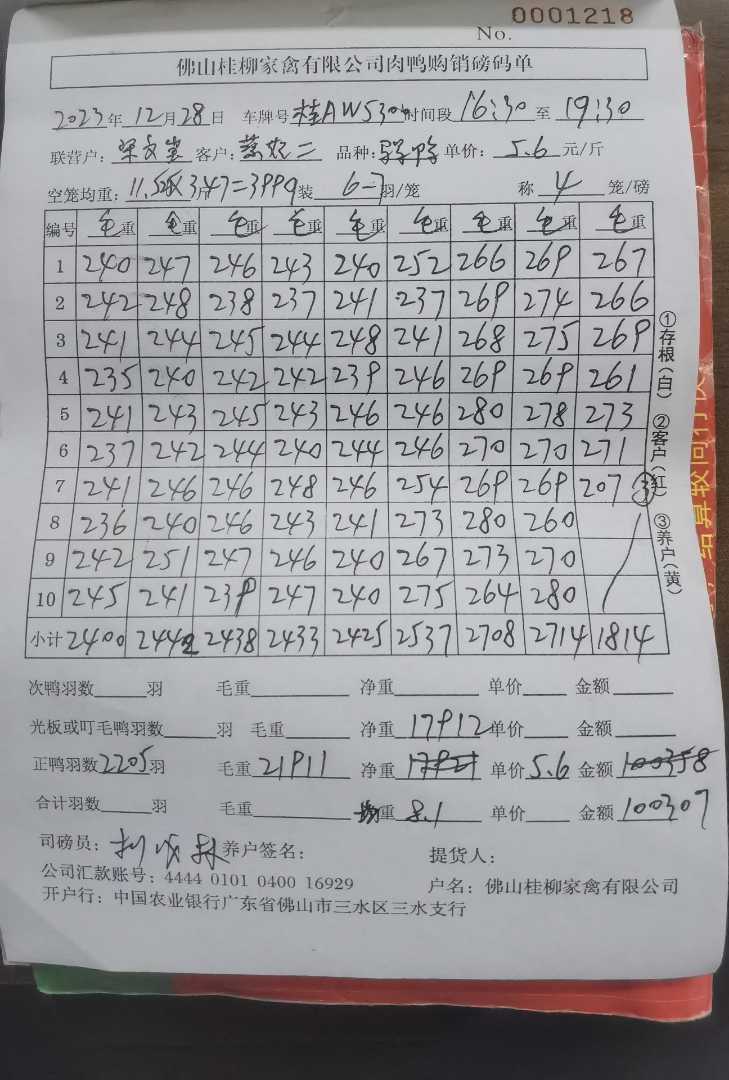 0001218
No.
佛山桂柳家禽有限公司肉鸭购销磅码单
2023年12月28日 车牌号桂AW530 时间段16:30至19:30
联营户: 客户: 品种: 单价:5.6元/斤
空笼均重:11.52 347=3999装6-7羽/笼 称4笼/磅
编号 毛重 毛重 毛重 毛重 毛重 毛重 毛重 毛重 毛重
1 240 247 246 243 240 252 266 269 267
2 242 248 238 237 241 237 269 274 266
3 241 244 245 244 248 241 268 275 269
4 235 240 242 242 239 246 269 269 261
5 241 243 245 243 246 246 280 278 273
6 237 242 244 240 244 246 270 270 271
7 241 246 246 248 246 254 269 269 207 ③
8 236 240 246 243 241 273 280 260
9 242 251 247 246 240 267 273 270
10 245 241 239 247 240 275 264 280
小计 2400 2442 2438 2433 2425 2537 2708 2714 1814
①存根(白) ②客户(红) ③养户(黄)
次鸭羽数 羽 毛重 净重 单价 金额
光板或叮毛鸭羽数 羽 毛重 净重17912单价 金额
正鸭羽数2205羽 毛重21911 净重17921 单价5.6 金额100358
合计羽数 羽 毛重 均重8.1 单价 金额100307
司磅员: 养户签名: 提货人:
公司汇款账号: 4444 0101 0400 16929 户名: 佛山桂柳家禽有限公司
开户行: 中国农业银行广东省佛山市三水区三水支行